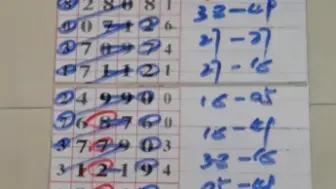 3 2 8 0 8 1 33-49
1 0 7 1 2 6
4 7 0 9 7 4 27-27
4 7 1 1 2 1 27-16
2 4 9 9 0 0 16-95
7 6 8 7 6 0 16-49
3 7 7 9 0 3 33-16
3 1 2 1 9 4